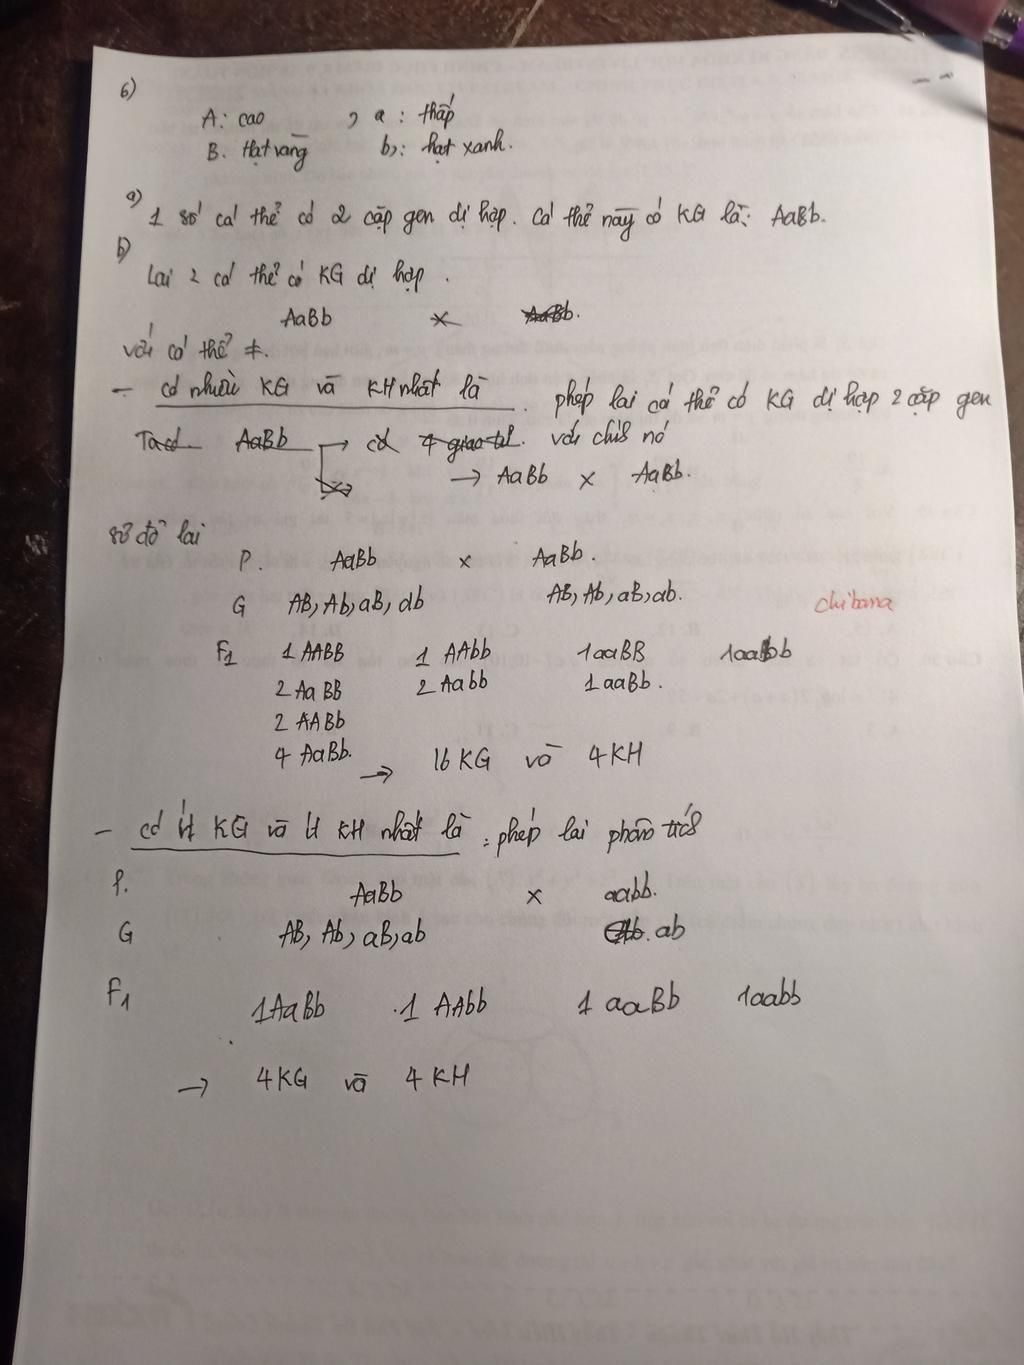 6)
A: cao , a : thấp
B. Hạt vàng b: hạt xanh.
a) 1 số cá thể có 2 cặp gen dị hợp. Cá thể này có KG là: AaBb.
b) Lai 2 cá thể có KG dị hợp.
AaBb × AaBb.
với cá thể ≠.
- có nhiều KG và KH nhất là . phép lai cá thể có KG dị hợp 2 cặp gen
Ta có AaBb → có 4 giao tử. với chính nó
→ AaBb × AaBb.
sơ đồ lai
P. AaBb × AaBb.
G AB, Ab, aB, ab AB, Ab, aB, ab.
chibana
F1 1 AABB 1 AAbb 1aaBB 1aabb
2 AaBB 2 Aabb 1 aaBb.
2 AABb
4 AaBb.
→ 16 KG và 4 KH
- có ít KG và ít KH nhất là : phép lai phân tích
P. AaBb × aabb.
G AB, Ab, aB, ab ab
F1 1AaBb 1 AAbb 1 aaBb 1aabb
→ 4 KG và 4 KH